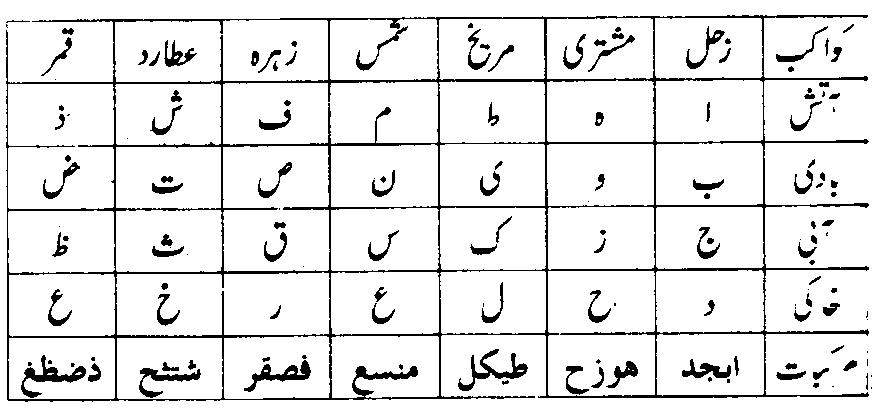 کواکب زحل مشتری مریخ شمس زہرہ عطارد قمر
آتش ا ہ ط م ف ش ذ
بادی ب و ی ن ص ت ض
آبی ج ز ک س ق ث ظ
خاکی د ح ل ع ر خ ع
مرکبات ابجد ھوزح طیکل منسع فصقر شتثخ ذضظغ